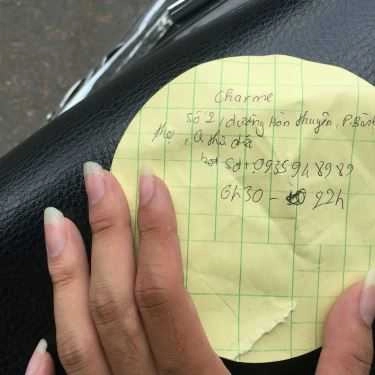 Charme
Số 2, đường Hàn Thuyên, P. Bình
Thọ, Q. Thủ Đức
Sđt: 0935 918989
6h30 - 22h